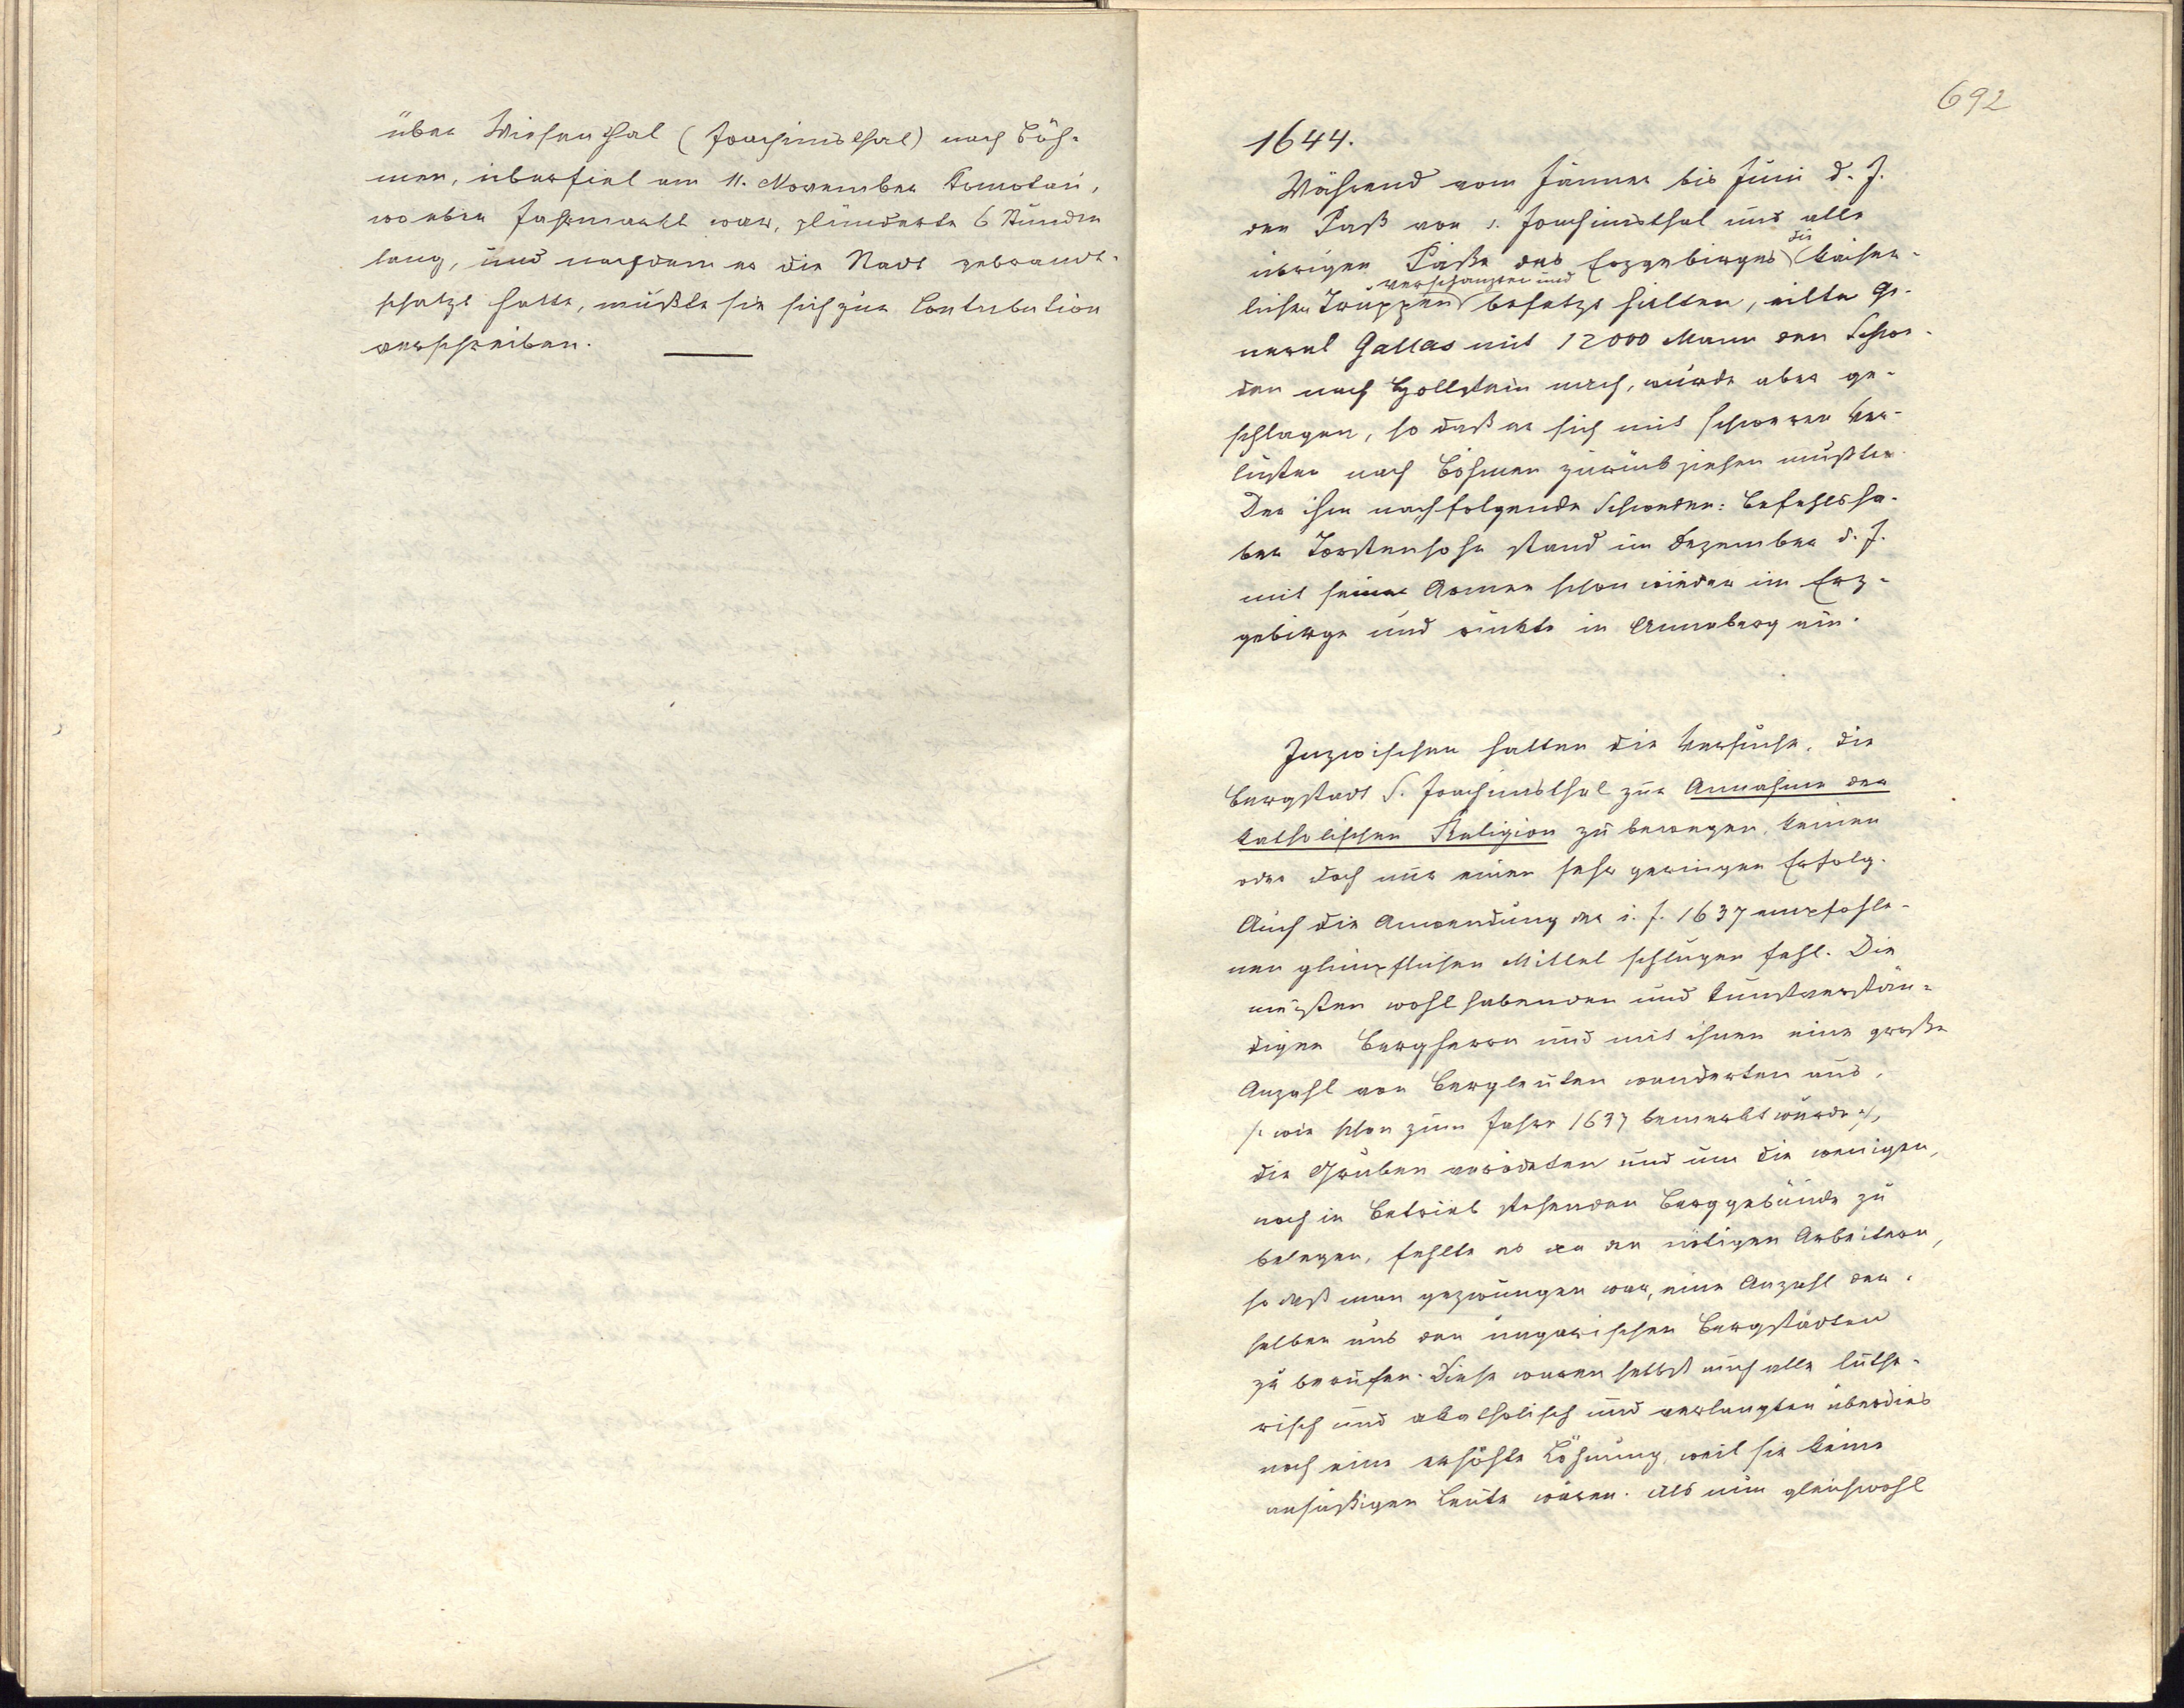 über Wiesenthal (Joachimsthal) nach Böh-
men, überfiel am 11. November Komotau,
wo eben Jahrmarkt war, plünderte 6 Stunden
lang, und nachdem er die Stadt gebrandt-
schatzt hatte, mußte sie sich zur Contribution
verschreiben.
692
1644.
Während vom Jänner bis Juni d. J.
den Paß von S. Joachimsthal und alle
übrigen Päße des Erzgebirges die kaiser-
lichen Truppen verschanzten und besetzt hielten, eilte Ge-
neral Gallas mit 12000 Mann den Schwe-
den nach Hollstein nach, wurde aber ge-
schlagen, so daß er sich mit schweren Ver-
lusten nach Böhmen zurückziehen mußte.
Der ihm nachfolgende Schweden: Befehlsha-
ber Torstensohn stand im Dezember d. J.
mit seiner Armee schon wieder im Erz-
gebirge und rückte in Annaberg ein.
Inzwischen hatten die Versuche, die
Bergstadt S. Joachimsthal zur Annahme der
katholischen Religion zu bewegen, keinen
oder doch nur einen sehr geringen Erfolg.
Auch die Anwendung der i. J. 1637 empfohle-
nen glimpflichen Mittel schlugen fehl. Die
meisten wohlhabenden und kunstverstän-
digen Bergherrn und mit ihnen eine große
Anzahl von Bergleuten wanderten aus,
/: wie schon zum Jahre 1637 bemerkt wurde :/,
die Gruben verödeten und um die wenigen,
noch in Betrieb stehenden Berggebäude zu
belegen, fehlte es an den nötigen Arbeitern,
so daß man gezwungen war, eine Anzahl der-
selben aus den ungarischen Bergstädten
zu berufen. Diese waren selbst auch alle luthe-
risch und akatholisch und verlangten überdies
noch eine erhöhte Löhnung, weil sie keine
ansäßigen Leute waren. Als nun gleichwohl